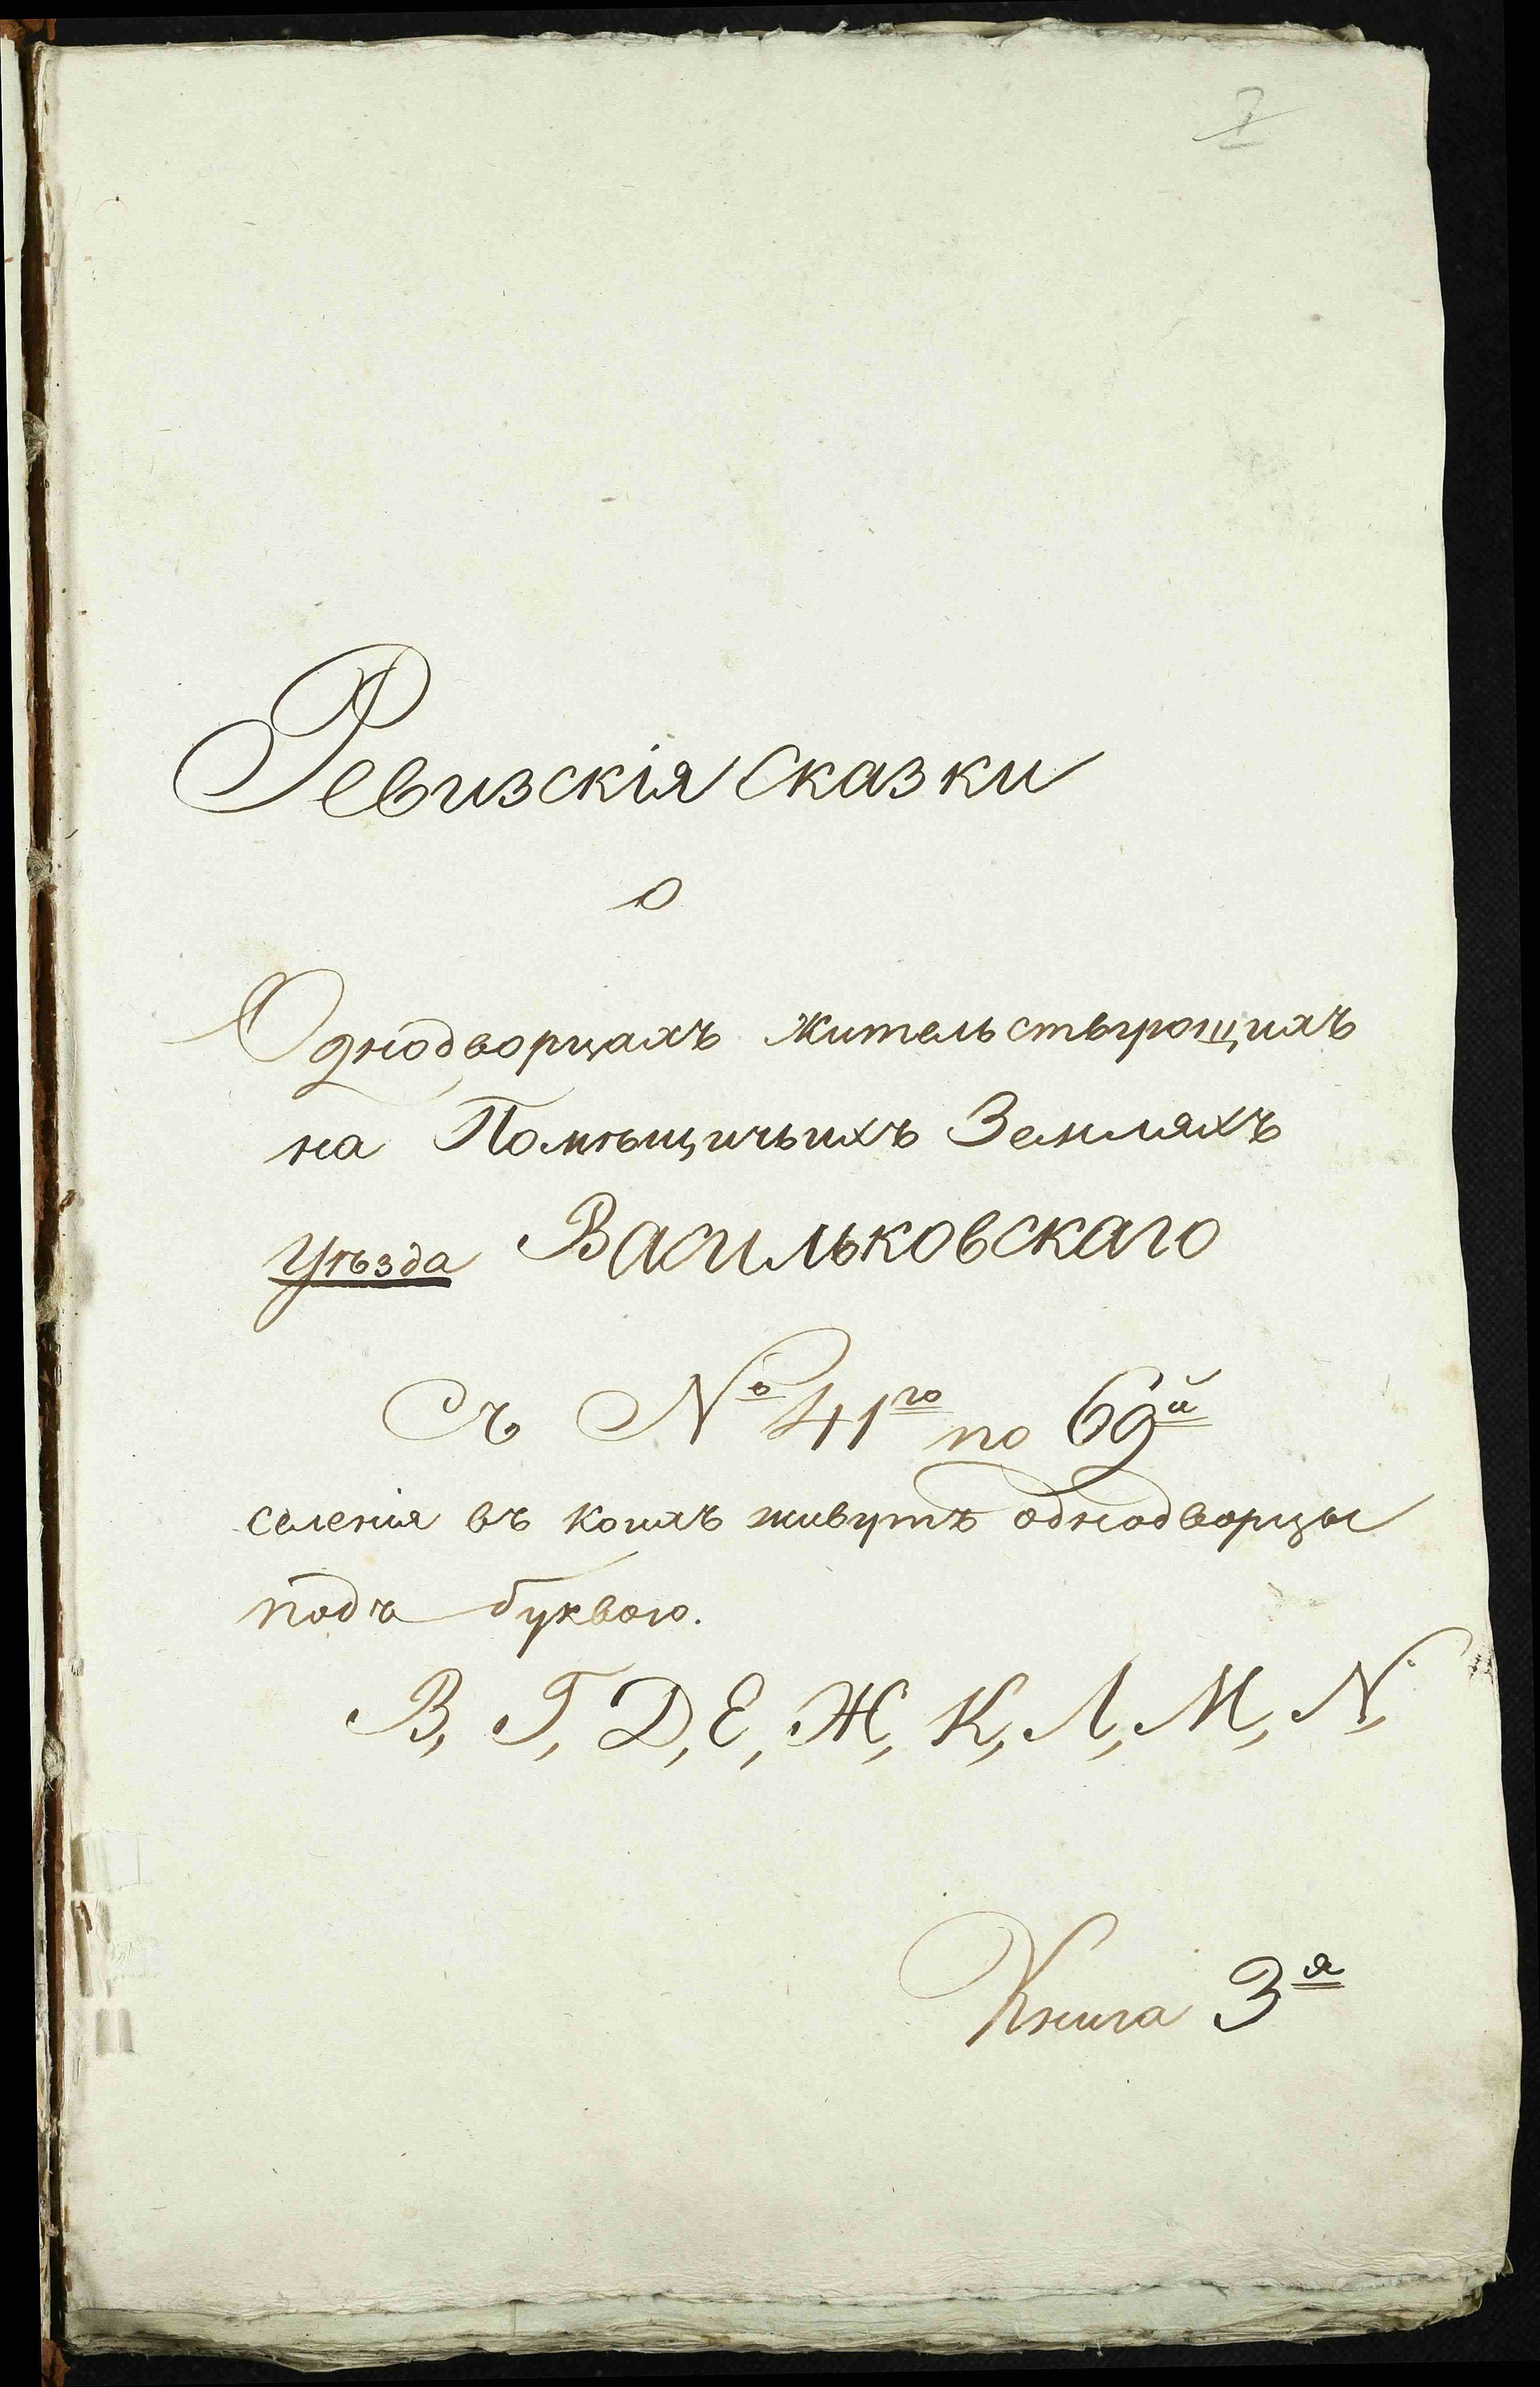 Ревизскія Сказки
о
Однодворцахъ жительствующихъ
на Помѣщичьихъ Земляхъ
Уѣзда Васильковскаго
Съ № 41го по 69й
селенія въ коихъ живутъ однодворцы
подъ буквою.
В, Г, Д, Е, Ж, К, Л, М, N,
Книга 3я